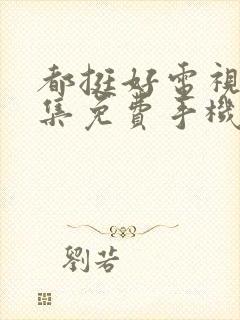 都挺好電視
集免費手機
劉若